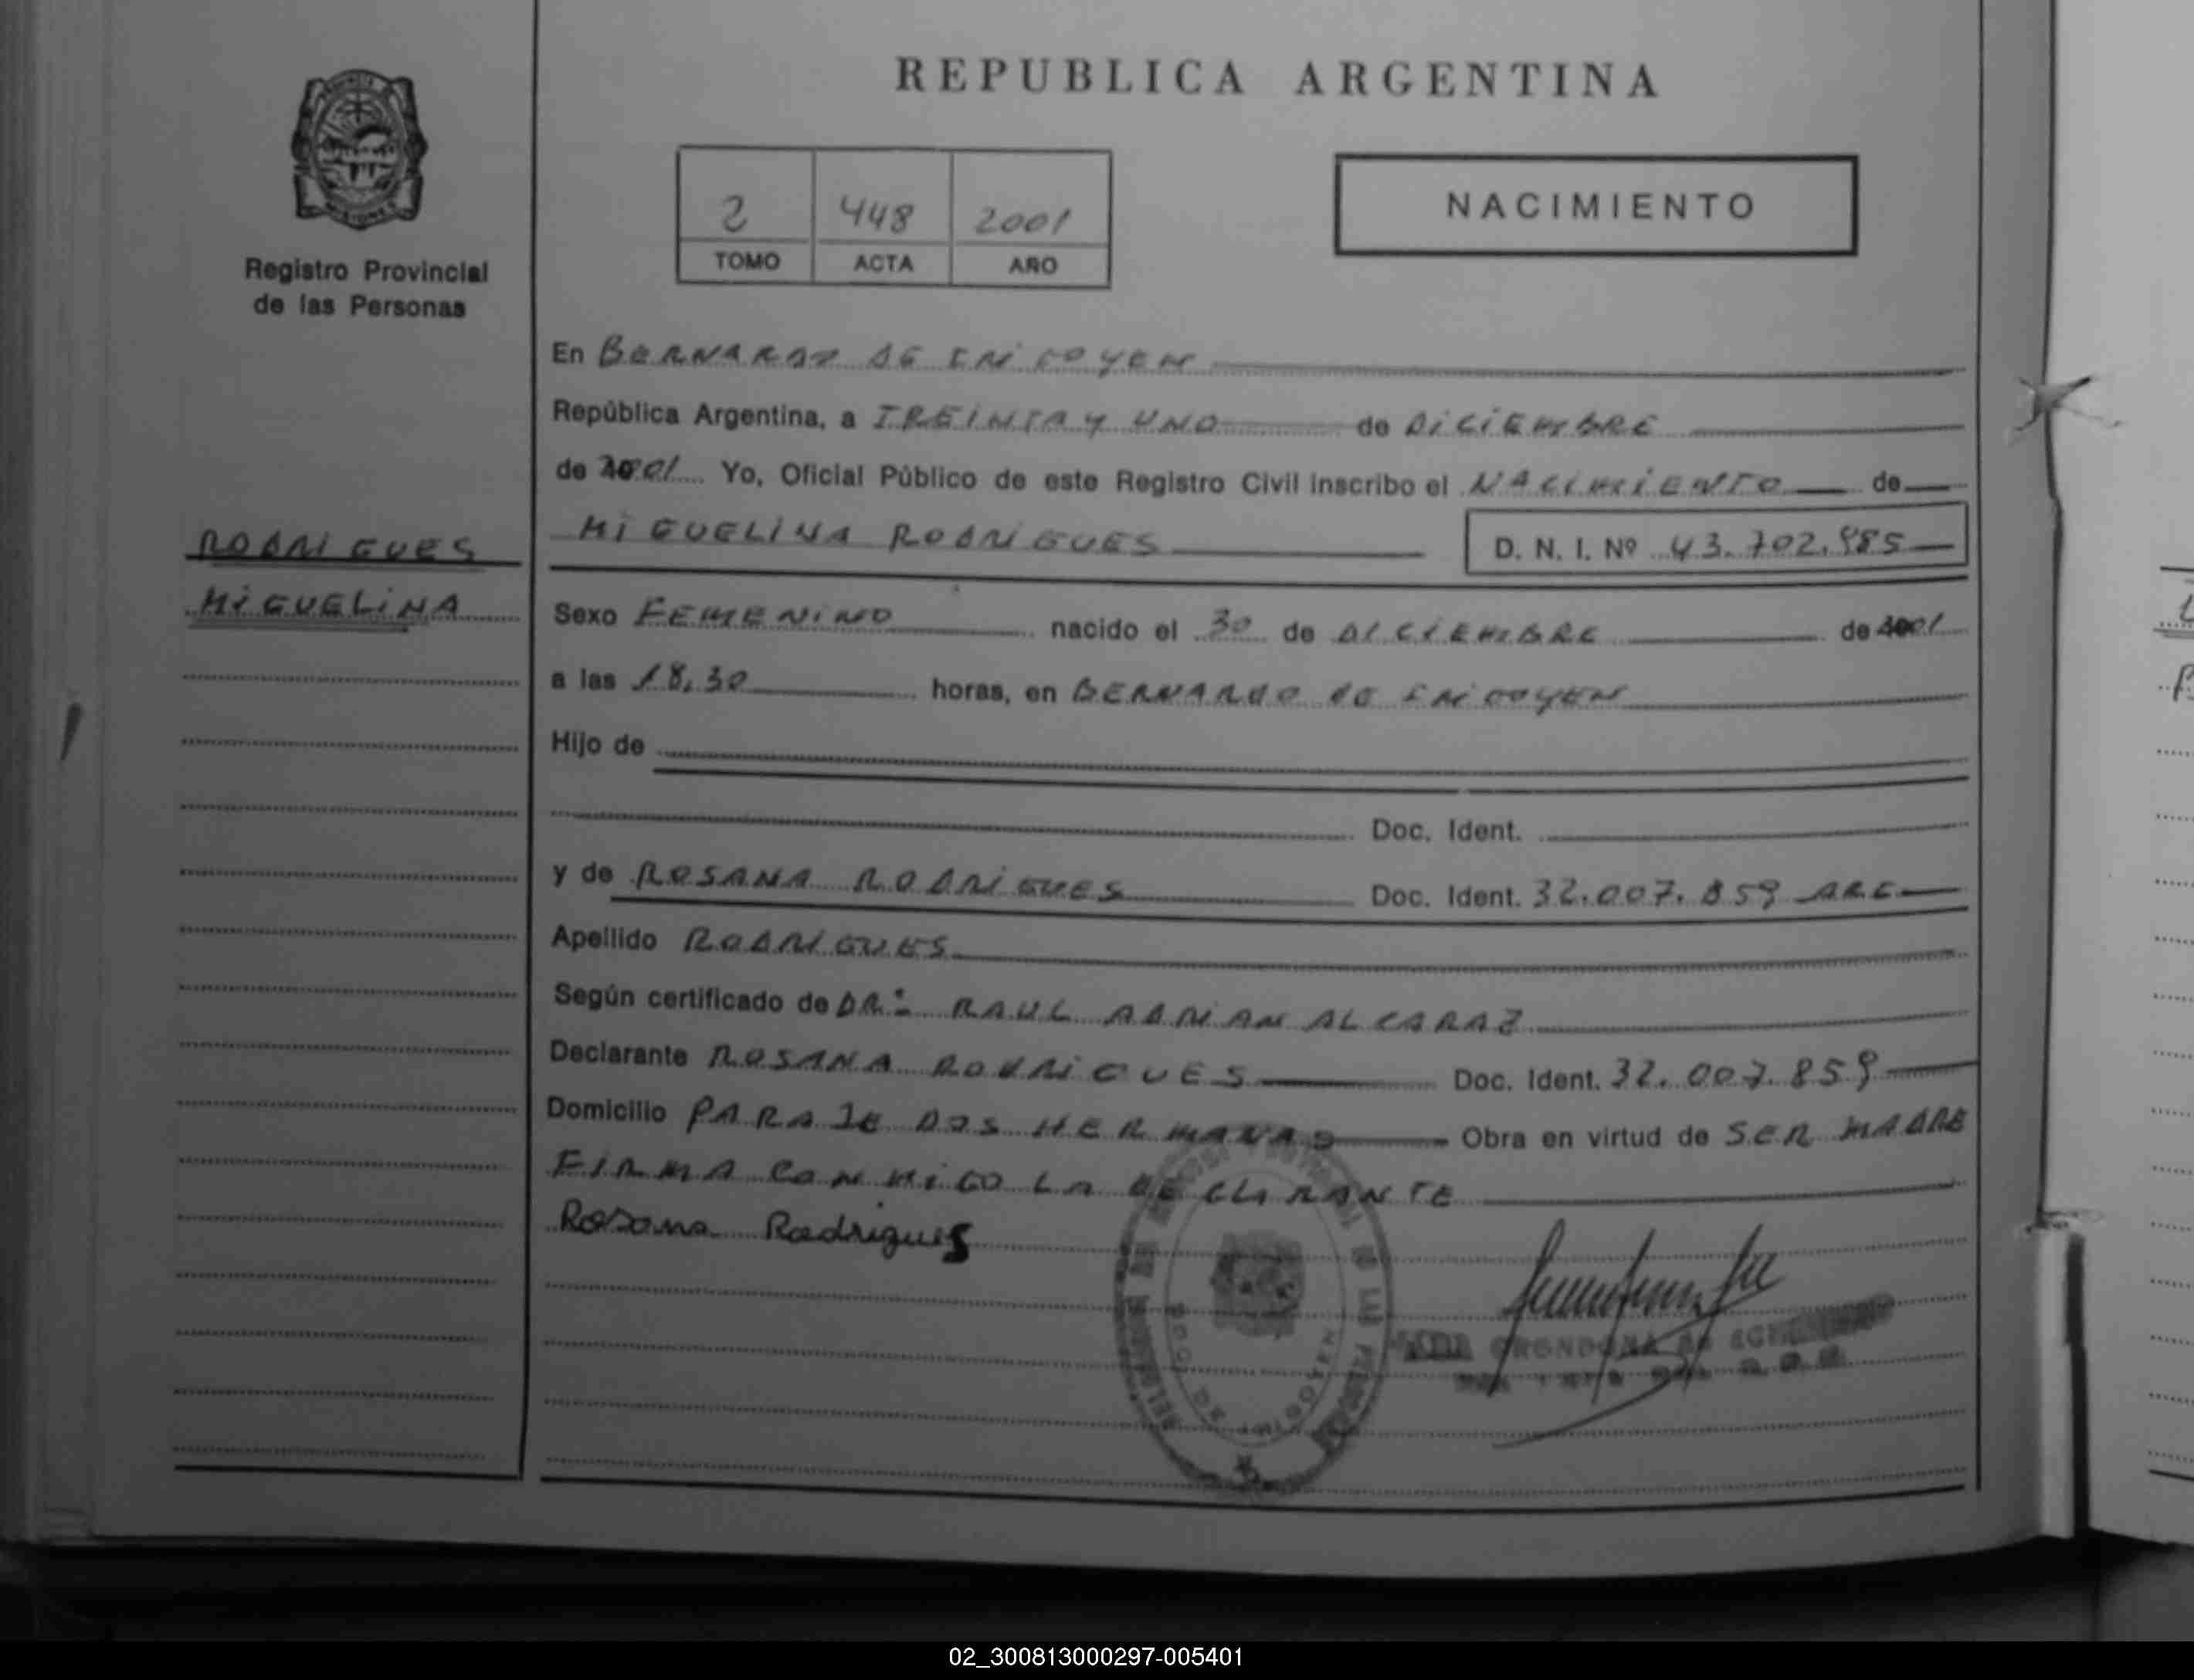 REPUBLICA ARGENTINA
2 448 2001
TOMO ACTA AÑO
NACIMIENTO
Registro Provincial
de las Personas
En BERNARDO DE IRIGOYEN
República Argentina, a TREINTA Y UNO de DICIEMBRE
de 2001 Yo, Oficial Público de este Registro Civil inscribo el NACIMIENTO de
RODRIGUES
MIGUELINA
MIGUELINA RODRIGUES D. N. I. Nº 43.702.985
Sexo FEMENINO nacido el 30 de DICIEMBRE de 2001
a las 18,30 horas, en BERNARDO DE IRIGOYEN
Hijo de
Doc. Ident.
y de ROSANA RODRIGUES Doc. Ident. 32.007.859 ARG
Apellido RODRIGUES
Según certificado de DR: RAUL ADRIAN ALCARAZ
Declarante ROSANA RODRIGUES Doc. Ident. 32.007.859
Domicilio PARAJE DOS HERMANAS Obra en virtud de SER MADRE
FIRMA CONMIGO LA DECLARANTE
Rosana Rodrigues
02_300813000297-005401